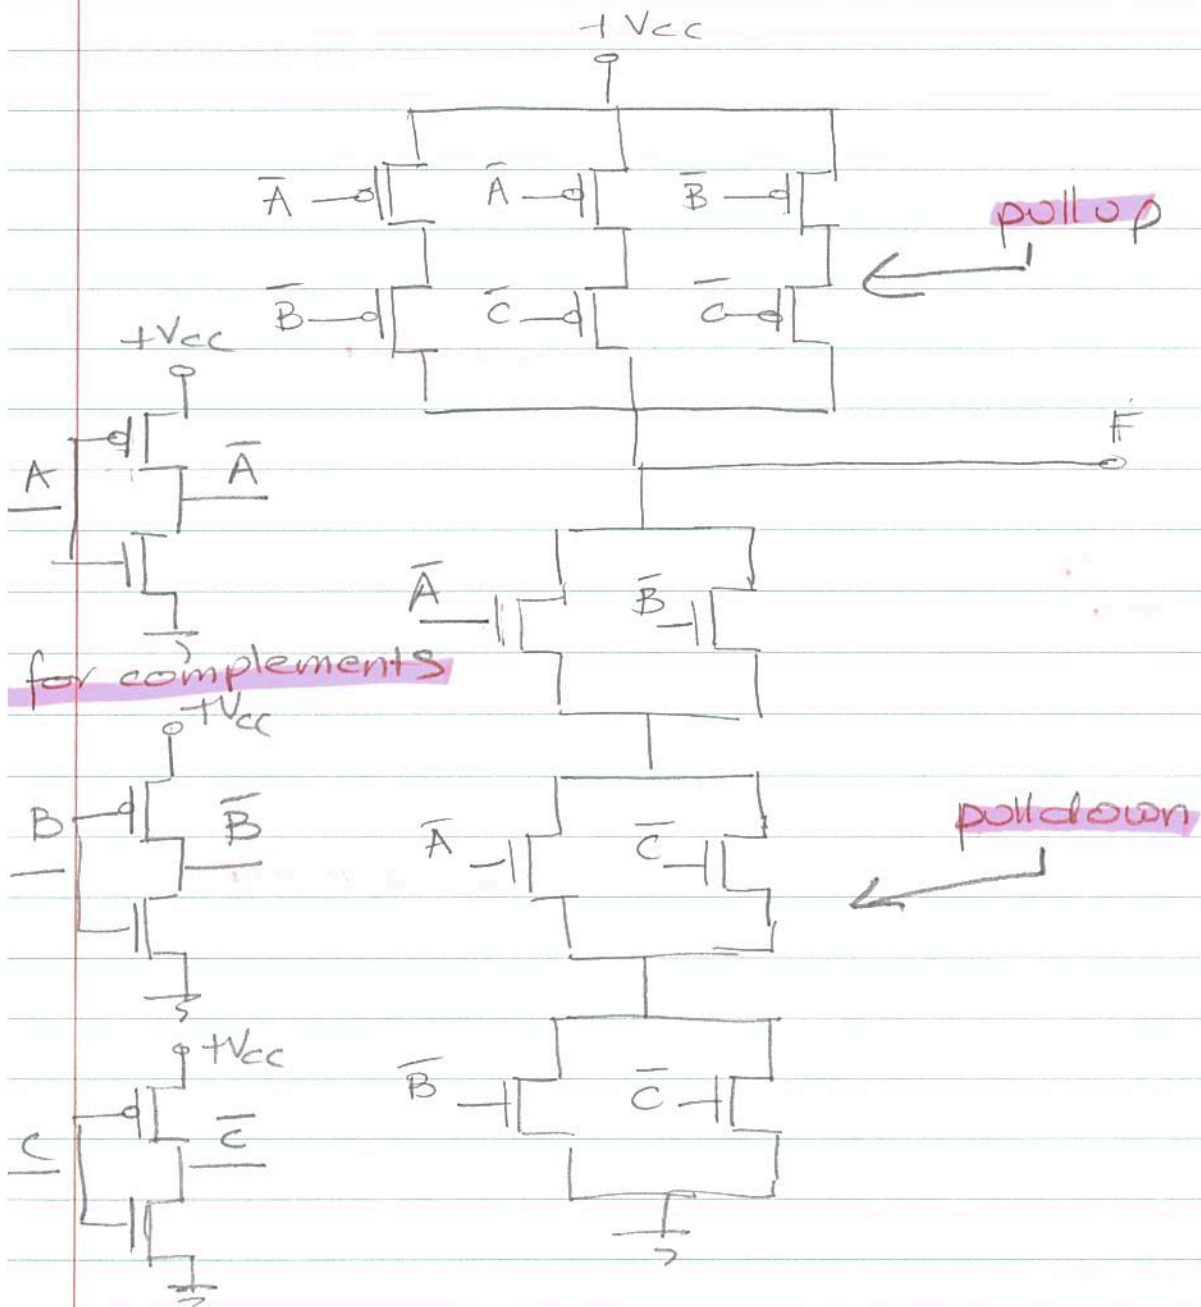 +Vcc
A̅ A̅ B̅
pull up
B̅ C̅ C̅
+Vcc
F
A A̅
A̅ B̅
for complements
+Vcc
B B̅
A̅ C̅
pulldown
+Vcc
B̅ C̅
C C̅